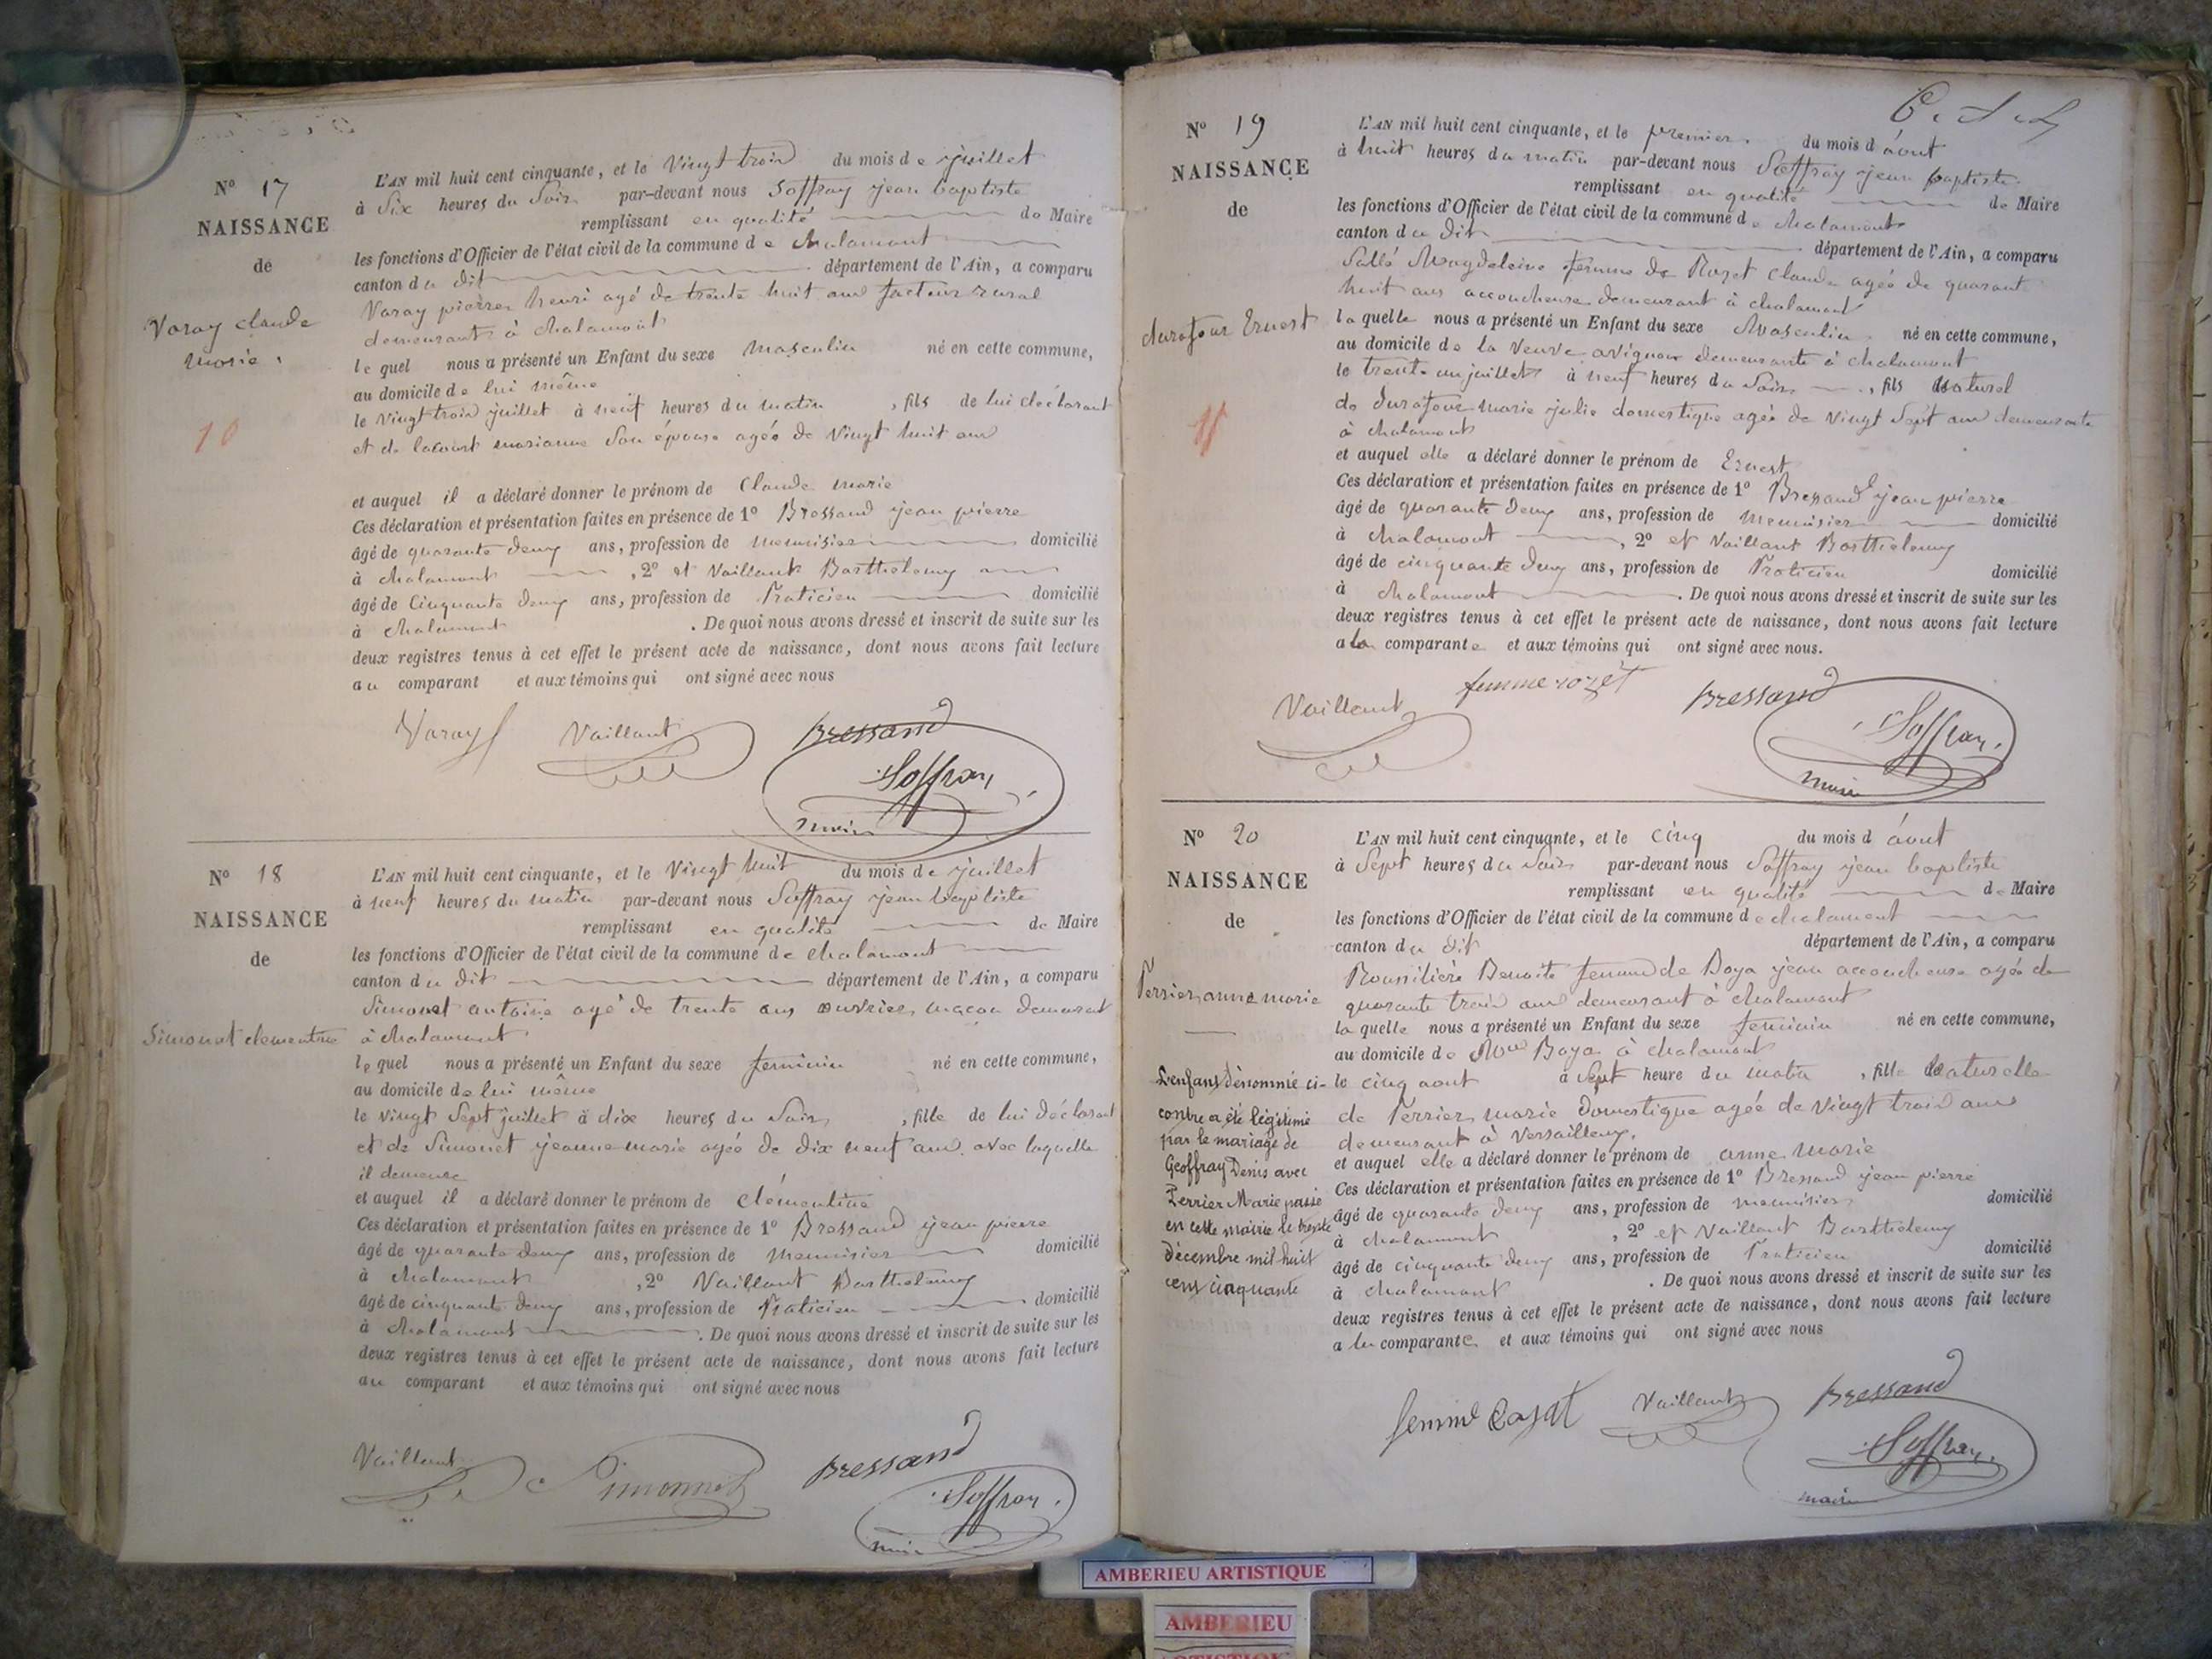 N° 17
NAISSANCE
de
Varay claude
marie
10
L'AN mil huit cent cinquante, et le Vingt trois du mois de juillet
à Six heures du Soir par-devant nous Soffray jean baptiste
remplissant en qualité de Maire
les fonctions d'Officier de l'état civil de la commune de chalamont
canton du dit département de l'Ain, a comparu
Varay pierre henri agé de trente huit ans facteur rural
demeurant à chalamont
lequel nous a présenté un Enfant du sexe Masculin né en cette commune,
au domicile de lui même
le Vingt trois juillet à neuf heures du matin, fils de lui déclarant
et de lacourt marianne Son épouse agée de Vingt huit ans
et auquel il a déclaré donner le prénom de Claude marie
Ces déclaration et présentation faites en présence de 1° Bressand jean pierre
âgé de quarante deux ans, profession de menuisier domicilié
à chalamont, 2° et Vaillant Barthelemy
âgé de Cinquante deux ans, profession de Praticien domicilié
à chalamont. De quoi nous avons dressé et inscrit de suite sur les
deux registres tenus à cet effet le présent acte de naissance, dont nous avons fait lecture
au comparant et aux témoins qui ont signé avec nous
Varay Vaillant Bressand
Soffray
maire
N° 18
NAISSANCE
de
Simonet clementine
L'AN mil huit cent cinquante, et le Vingt huit du mois de juillet
à neuf heures du matin par-devant nous Soffray jean baptiste
remplissant en qualité de Maire
les fonctions d'Officier de l'état civil de la commune de chalamont
canton du dit département de l'Ain, a comparu
Simonet antoine agé de trente ans ouvrier maçon demeurant
à chalamont
lequel nous a présenté un Enfant du sexe feminin né en cette commune,
au domicile de lui même
le Vingt Sept juillet à dix heures du Soir, fille de lui déclarant
et de Simonet jeanne marie agée de dix neuf ans avec laquelle
il demeure
et auquel il a déclaré donner le prénom de clémentine
Ces déclaration et présentation faites en présence de 1° Bressand jean pierre
âgé de quarante deux ans, profession de menuisier domicilié
à chalamont, 2° Vaillant Barthelemy
âgé de cinquante deux ans, profession de Praticien domicilié
à chalamont. De quoi nous avons dressé et inscrit de suite sur les
deux registres tenus à cet effet le présent acte de naissance, dont nous avons fait lecture
au comparant et aux témoins qui ont signé avec nous
Vaillant Simonnet Bressand
Soffray
maire
N° 19
NAISSANCE
de
durafour Ernest
11
L'AN mil huit cent cinquante, et le premier du mois d'áout
à huit heures du matin par-devant nous Soffray jean baptiste
remplissant en qualité de Maire
les fonctions d'Officier de l'état civil de la commune de chalamont
canton du dit département de l'Ain, a comparu
Sallé Magdeleine femme de Rozet claude agée de quarant
huit ans accoucheuse demeurant à chalamont
laquelle nous a présenté un Enfant du sexe Masculin né en cette commune,
au domicile de la Veuve avignon demeurante à chalamont
le trente un juillet à neuf heures du Soir, fils naturel
de durafour marie julie domestique agée de vingt Sept ans demeurante
à chalamont
et auquel elle a déclaré donner le prénom de Ernest
Ces déclaration et présentation faites en présence de 1° Bressand jean pierre
âgé de quarante deux ans, profession de menuisier domicilié
à chalamont, 2° et Vaillant Barthelemy
âgé de cinquante deux ans, profession de Praticien domicilié
à chalamont. De quoi nous avons dressé et inscrit de suite sur les
deux registres tenus à cet effet le présent acte de naissance, dont nous avons fait lecture
a la comparante et aux témoins qui ont signé avec nous.
Vaillant femme rozet Bressand
Soffray
maire
N° 20
NAISSANCE
de
Perrier anne marie
L'enfant dénommé ci-
contre a été légitimé
par le mariage de
Geoffray Denis avec
Perrier Marie passé
en cette mairie le trente
décembre mil huit
cent cinquante
L'AN mil huit cent cinquante, et le cinq du mois d'áout
à Sept heures du Soir par-devant nous Soffray jean baptiste
remplissant en qualité de Maire
les fonctions d'Officier de l'état civil de la commune de chalamont
canton du dit département de l'Ain, a comparu
Benoite femme de Boya jean accoucheuse agée de
quarante trois ans demeurant à chalamont
laquelle nous a présenté un Enfant du sexe feminin né en cette commune,
au domicile de Boya à chalamont
le cinq aout à Sept heure du matin, fille Naturelle
de Perrier marie domestique agée de vingt trois ans
demeurant à Versailleux,
et auquel elle a déclaré donner le prénom de anne marie
Ces déclaration et présentation faites en présence de 1° Bressand jean pierre
âgé de quarante deux ans, profession de menuisier domicilié
à chalamont, 2° et Vaillant Barthelemy
âgé de cinquante deux ans, profession de Praticien domicilié
à chalamont. De quoi nous avons dressé et inscrit de suite sur les
deux registres tenus à cet effet le présent acte de naissance, dont nous avons fait lecture
a la comparante et aux témoins qui ont signé avec nous
Vaillant Bressand
Soffray
maire
AMBERIEU ARTISTIQUE
AMBERIEU
ARTISTIQUE